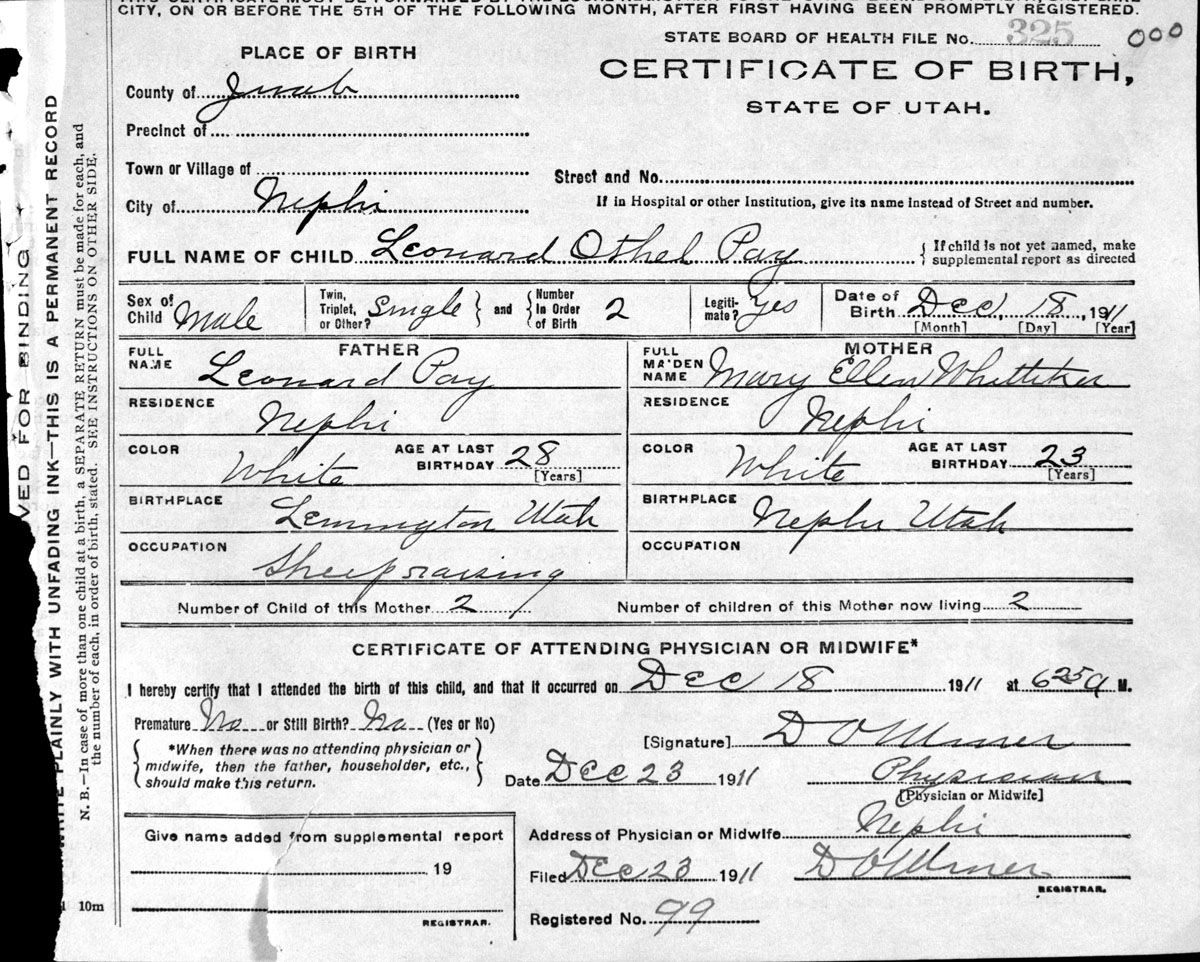 CITY, ON OR BEFORE THE 5TH OF THE FOLLOWING MONTH, AFTER FIRST HAVING BEEN PROMPTLY REGISTERED.
STATE BOARD OF HEALTH FILE No. 325 000
PLACE OF BIRTH
CERTIFICATE OF BIRTH,
STATE OF UTAH.
County of Juab
Precinct of
Town or Village of
Street and No.
City of Nephi
If in Hospital or other Institution, give its name instead of Street and number.
FULL NAME OF CHILD Leonard Othel Pay { If child is not yet named, make
supplemental report as directed
Sex of Child Male
Twin, Triplet, or Other? Single } and { Number In Order of Birth 2
Legiti-mate? Yes
Date of Birth Dec, 18, 1911
[Month] [Day] [Year]
FATHER
FULL NAME Leonard Pay
RESIDENCE Nephi
COLOR White AGE AT LAST BIRTHDAY 28
[Years]
BIRTHPLACE Lemmington Utah
OCCUPATION Sheep raising
MOTHER
FULL MAIDEN NAME Mary Ellen Whittiker
RESIDENCE Nephi
COLOR White AGE AT LAST BIRTHDAY 23
[Years]
BIRTHPLACE Nephi Utah
OCCUPATION
Number of Child of this Mother 2 Number of children of this Mother now living 2
CERTIFICATE OF ATTENDING PHYSICIAN OR MIDWIFE*
I hereby certify that I attended the birth of this child, and that it occurred on Dec 18 1911 at 625 a M.
Premature No or Still Birth? No (Yes or No)
*When there was no attending physician or
midwife, then the father, householder, etc.,
should make this return.
[Signature] D O Miner
Date Dec 23 1911 Physician
[Physician or Midwife]
Give name added from supplemental report
19
REGISTRAR.
Address of Physician or Midwife Nephi
Filed Dec 23 1911 D O Miner
REGISTRAR.
Registered No. 99
10m
VED FOR BINDING
WRITE PLAINLY WITH UNFADING INK—THIS IS A PERMANENT RECORD
N. B.—In case of more than one child at a birth, a SEPARATE RETURN must be made for each, and
the number of each, in order of birth, stated. SEE INSTRUCTIONS ON OTHER SIDE.